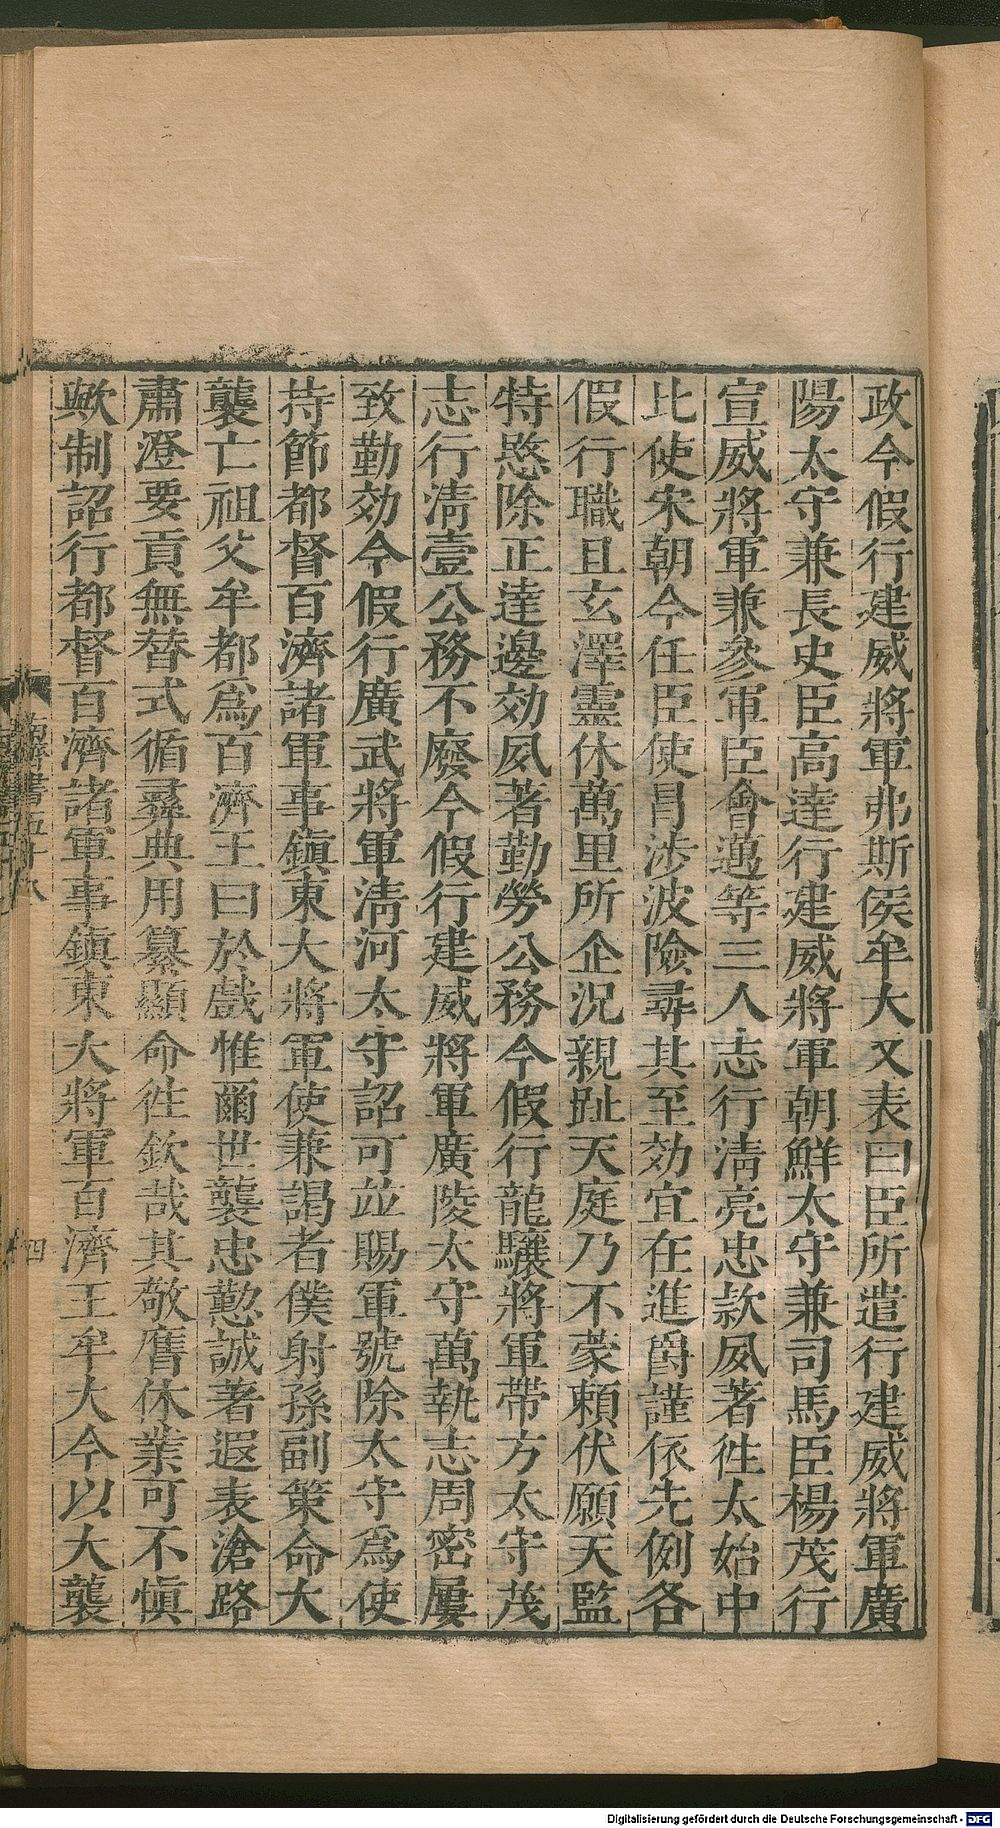 政今假行建威將軍弗斯侯牟大又表曰臣所遣行建威將軍廣
陽太守兼長史臣高達行建威將軍朝鮮太守兼司馬臣楊茂行
宣威將軍兼參軍臣會邁等三人志行淸亮忠款夙著徃太始中
比使宋朝今任臣使冒涉波險尋其至効宜在進爵謹依先例各
假行職且玄澤靈休萬里所企況親趾天庭乃不蒙頼伏願天監
特愍除正達邊効夙著勤勞公務今假行龍驤將軍帶方太守茂
志行淸壹公務不廢今假行建威將軍廣陵太守萬執志周密屢
致勤効今假行廣武將軍淸河太守詔可並賜軍號除太守爲使
持節都督百濟諸軍事鎭東大將軍使兼謁者僕射孫副策命大
襲亡祖父牟都爲百濟王曰於戲惟爾世襲忠懃誠著遐表滄路
肅澄要貢無替式循彞典用纂顯命徃欽哉其敬膺休業可不愼
歟制詔行都督百濟諸軍事鎭東大將軍百濟王牟大今以大襲
南齊書五十八
四
Digitalisierung gefördert durch die Deutsche Forschungsgemeinschaft - DFG